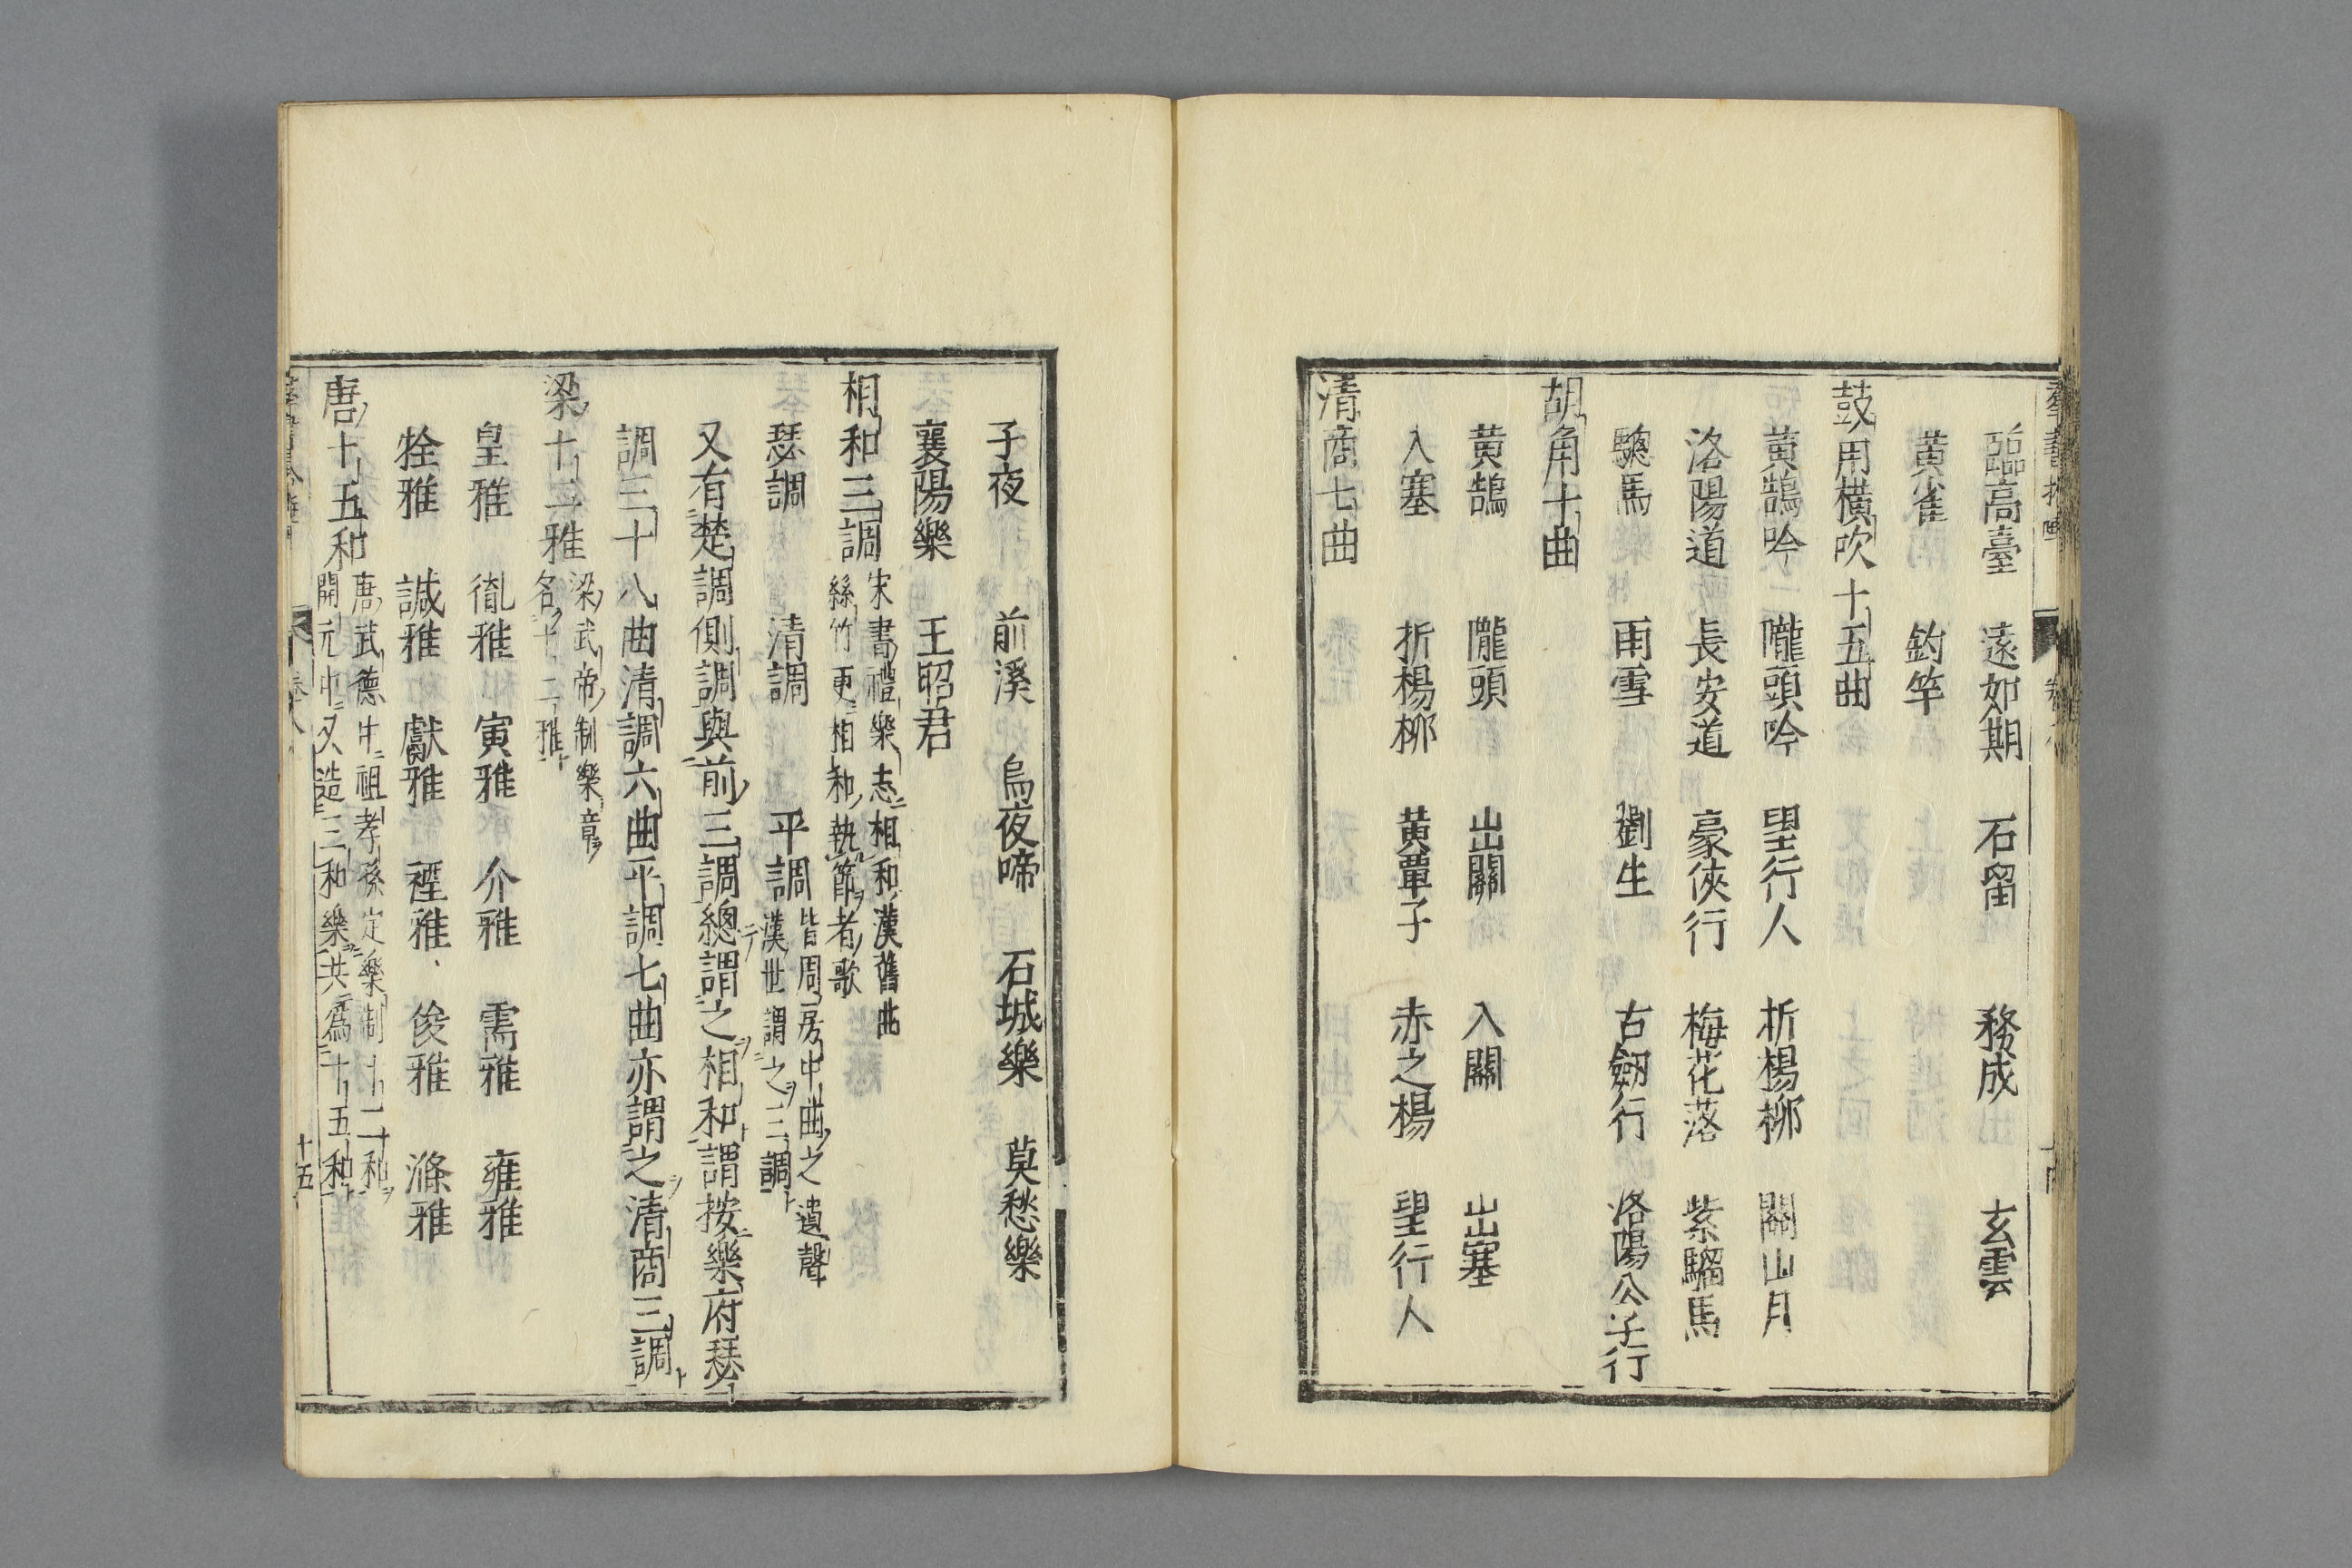 臨高臺　遠如期　石留　務成　玄雲
黄雀　釣竿
鼓用橫吹十五曲
黄鵠吟　隴頭吟　望行人　折楊柳　關山月
洛陽道　長安道　豪俠行　梅花落　紫騮馬
驄馬　雨雪　劉生　古劔行　洛陽公子行
胡角十曲
黄鵠　隴頭　出關　入關　出塞
入塞　折楊柳　黄覃子　赤之楊　望行人
清商七曲
子夜　前溪　烏夜啼　石城樂　莫愁樂
襄陽樂　王昭君
相和三調
宋書禮樂志相和漢舊曲
絲竹更相和執節者歌
瑟調　清調　平調
皆周房中曲之遺聲
漢世謂之三調
又有楚調側調與前三調總謂之相和謂按樂府瑟
調三十八曲清調六曲平調七曲亦謂之清商三調
梁十二雅
梁武帝制樂章
名十二雅
皇雅　胤雅　寅雅　介雅　需雅　雍雅
牷雅　諴雅　獻雅　禋雅　俊雅　滌雅
唐十五和
唐武德中祖孝孫定樂制十二和
開元中又造三和樂共爲十五和
十五